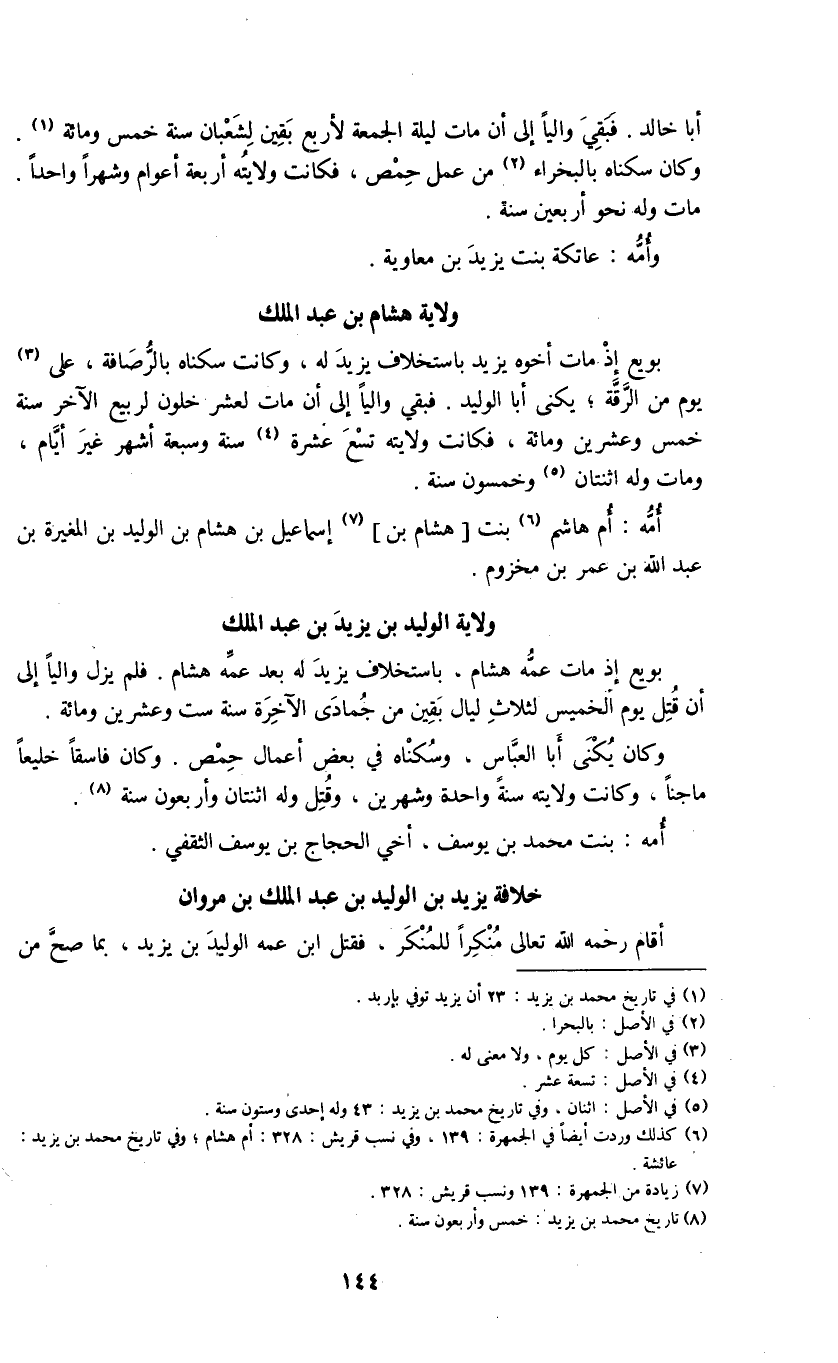 أبا خالد . فَبَقِيَ والياً إلى أن مات ليلة الجمعة لأربع بَقِين لِشَعْبان سنة خمس ومائة (١) .
وكان سكناه بالبخراء (٢) من عمل حِمْص ، فكانت ولايتُه أربعة أعوام وشهراً واحداً .
مات وله نحو أربعين سنة .
وأُمُّه : عاتكة بنت يزيدَ بن معاوية .
ولاية هشام بن عبد الملك
بويع إذْ مات أخوه يزيد باستخلاف يزيدَ له ، وكانت سكناه بالرُّصَافة ، على (٣)
يوم من الرَّقَّة ؛ يكنى أبا الوليد . فبقي والياً إلى أن مات لعشر خلون لربيع الآخر سنة
خمس وعشرين ومائة ، فكانت ولايته تسْعَ عشرة (٤) سنة وسبعة أشهر غيرَ أيَّام ،
ومات وله اثنتان (٥) وخمسون سنة .
أُمُّه : أُم هاشم (٦) بنت [ هشام بن ] (٧) إسماعيل بن هشام بن الوليد بن المغيرة بن
عبد الله بن عمر بن مخزوم .
ولاية الوليد بن يزيدَ بن عبد الملك
بويع إذ مات عمُّه هشام ، باستخلاف يزيدَ له بعد عمِّه هشام . فلم يزل والياً إلى
أن قُتِل يوم الخميس لثلاثِ ليال بَقِين من جُمادَى الآخِرَة سنة ست وعشرين ومائة .
وكان يُكْنَى أَبا العبَّاس ، وسُكنْاه في بعض أعمال حِمْص . وكان فاسقاً خليعاً
ماجناً ، وكانت ولايته سنةً واحدة وشهرين ، وقُتِل وله اثنتان وأربعون سنة (٨) .
أُمه : بنت محمد بن يوسف ، أخي الحجاج بن يوسف الثقفي .
خلافة يزيد بن الوليد بن عبد الملك بن مروان
أقام رحمه الله تعالى مُنْكِراً للمُنْكَر ، فقتل ابن عمه الوليدَ بن يزيد ، بما صحَّ من
(١) في تاريخ محمد بن يزيد : ٢٣ أن يزيد توفي بإربد .
(٢) في الأصل : بالبحرا .
(٣) في الأصل : كل يوم ، ولا معنى له .
(٤) في الأصل : تسعة عشر .
(٥) في الأصل : اثنان ، وفي تاريخ محمد بن يزيد : ٤٣ وله إحدى وستون سنة .
(٦) كذلك وردت أيضاً في الجمهرة : ١٣٩ ، وفي نسب قريش : ٣٢٨ : أم هشام ؛ وفي تاريخ محمد بن يزيد :
عائشة .
(٧) زيادة من الجمهرة : ١٣٩ ونسب قريش : ٣٢٨ .
(٨) تاريخ محمد بن يزيد : خمس وأربعون سنة .
١٤٤